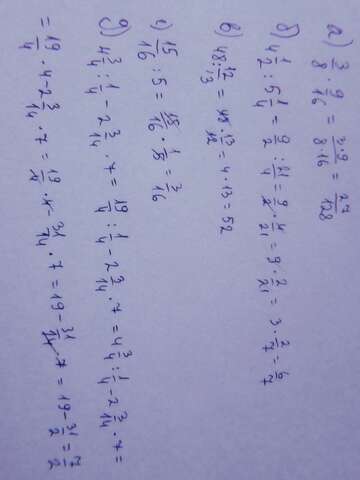 а) 3/8 · 9/16 = 3·9/8·16 = 27/128
б) 4 1/2 : 5 1/4 = 9/2 : 21/4 = 9/2 · 4/21 = 9 · 2/21 = 3 · 2/7 = 6/7
в) 48 : 12/13 = 48 · 13/12 = 4 · 13 = 52
г) 15/16 : 5 = 15/16 · 1/5 = 3/16
д) 4 3/4 : 1/4 - 2 3/14 · 7 = 19/4 : 1/4 - 2 3/14 · 7 = 4 3/4 : 1/4 - 2 3/14 · 7 =
= 19/4 · 4 - 2 3/14 · 7 = 19/4 · 4 - 31/14 · 7 = 19 - 31/14 · 7 = 19 - 31/2 = 7/2